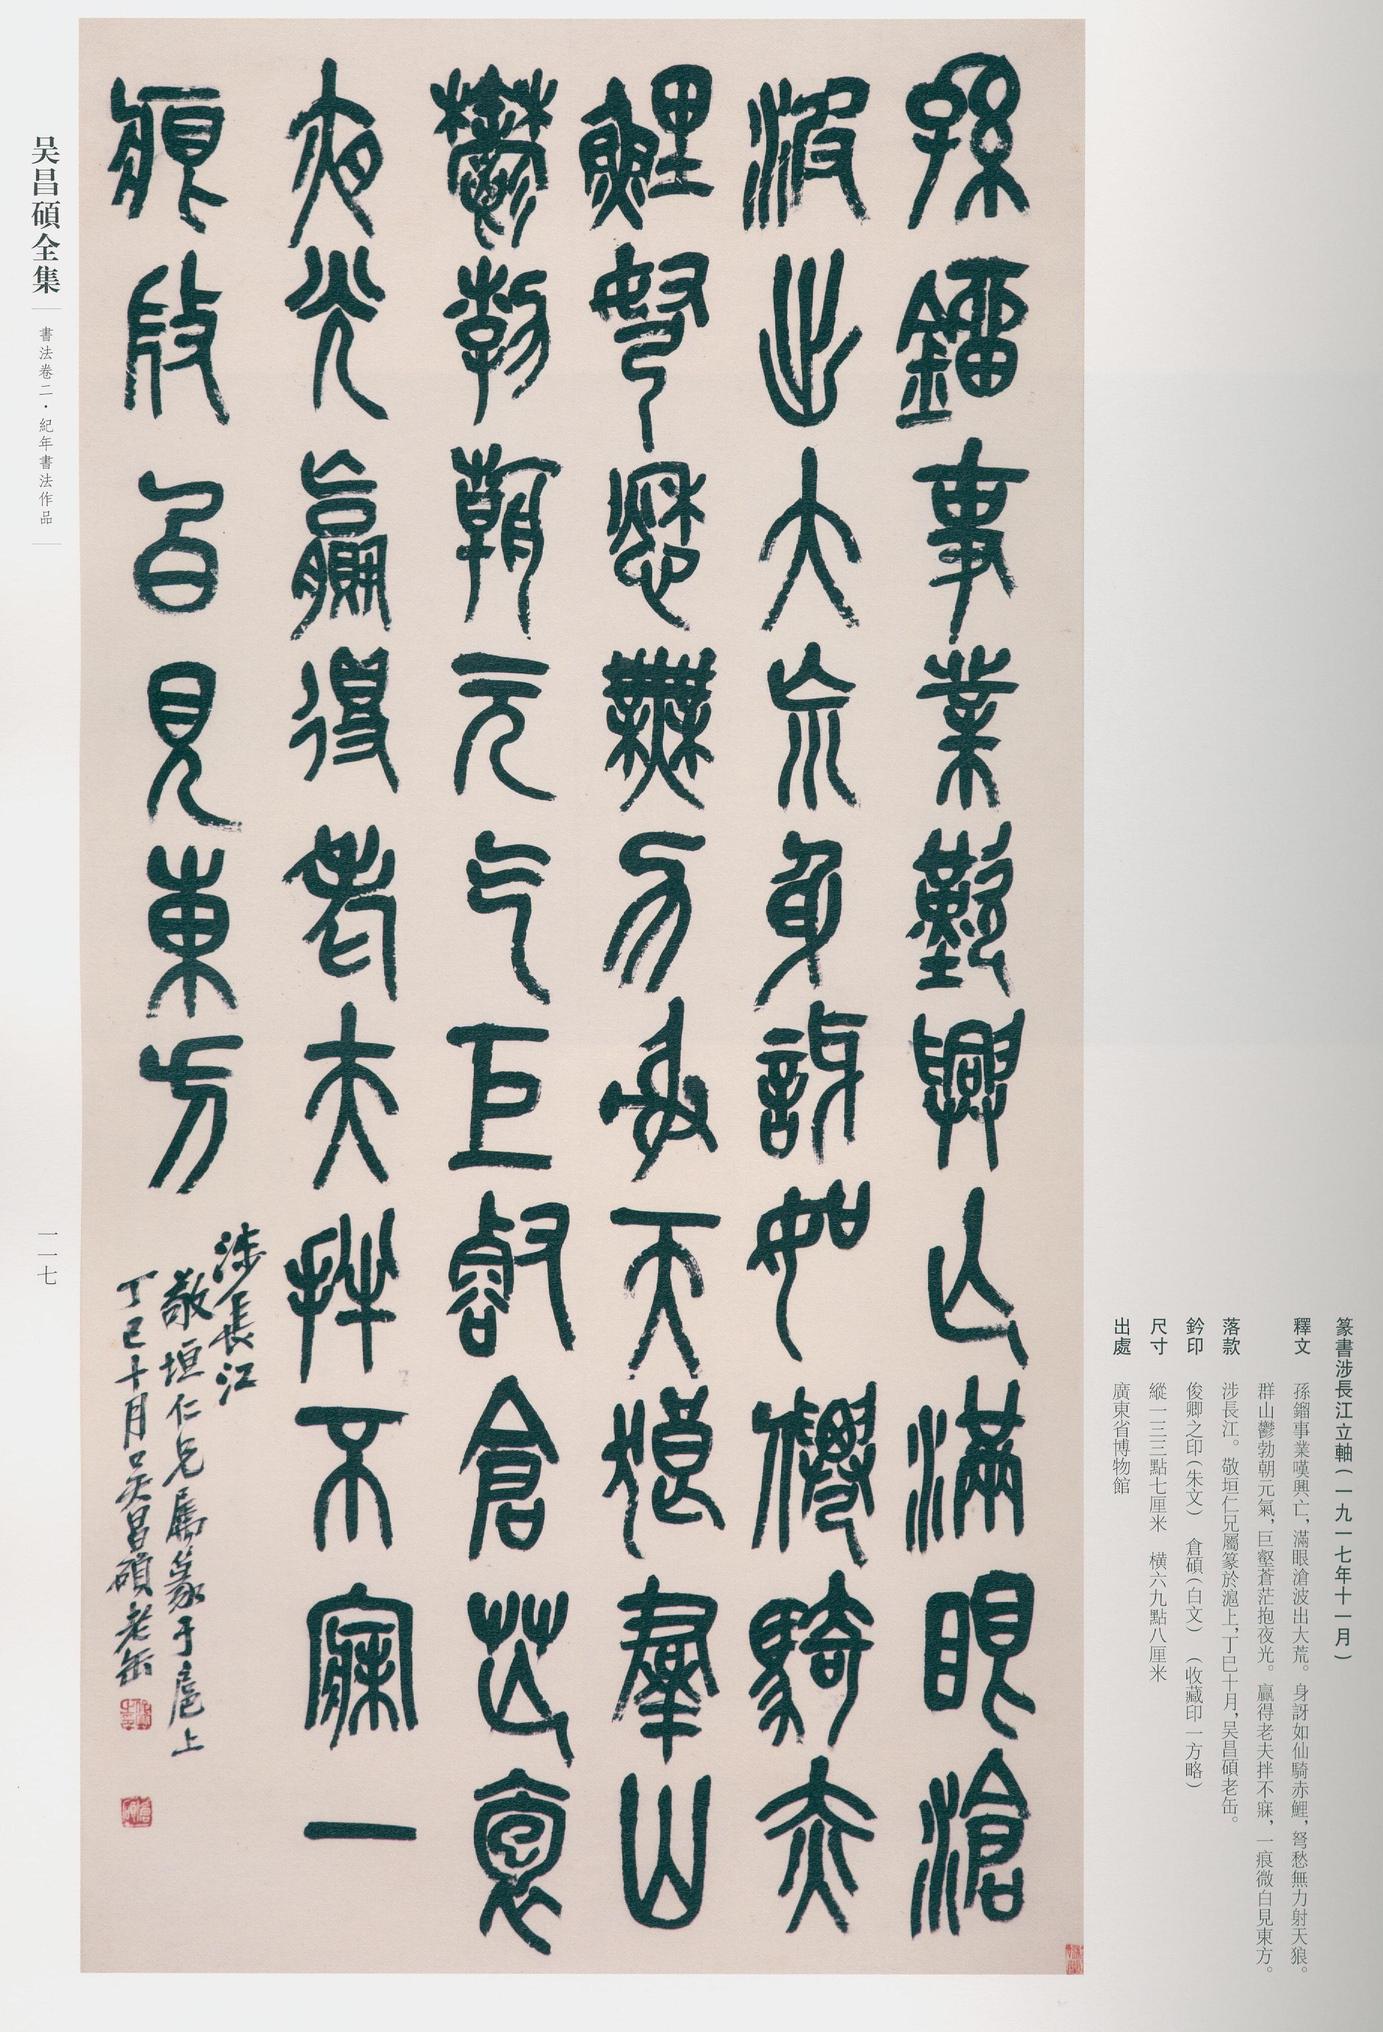 篆書涉長江立軸(一九一七年十一月)
釋文 孫鎦事業嘆興亡，滿眼滄波出大荒。身訝如仙騎赤鯉，弩愁無力射天狼。
群山鬱勃朝元氣，巨壑蒼茫抱夜光。贏得老夫拌不寐，一痕微白見東方。
落款 涉長江。敬垣仁兄屬篆於滬上，丁巳十月，吴昌碩老缶。
鈐印 俊卿之印(朱文) 倉碩(白文) (收藏印一方略)
尺寸 縱一三三點七厘米 橫六九點八厘米
出處 廣東省博物館
孫鎦事業歎興亡滿眼滄
波出大荒身訝如僊騎赤
鯉弩愁無力射天狼羣山
鬱勃朝元气巨壑倉茫袌
夜光贏得老夫拌不寐一
痕微白見東方
涉長江
敬垣仁兄屬篆于扈上
丁巳十月吳昌碩老缶
俊卿之印
倉碩
吴昌碩全集
書法卷二·紀年書法作品
一一七